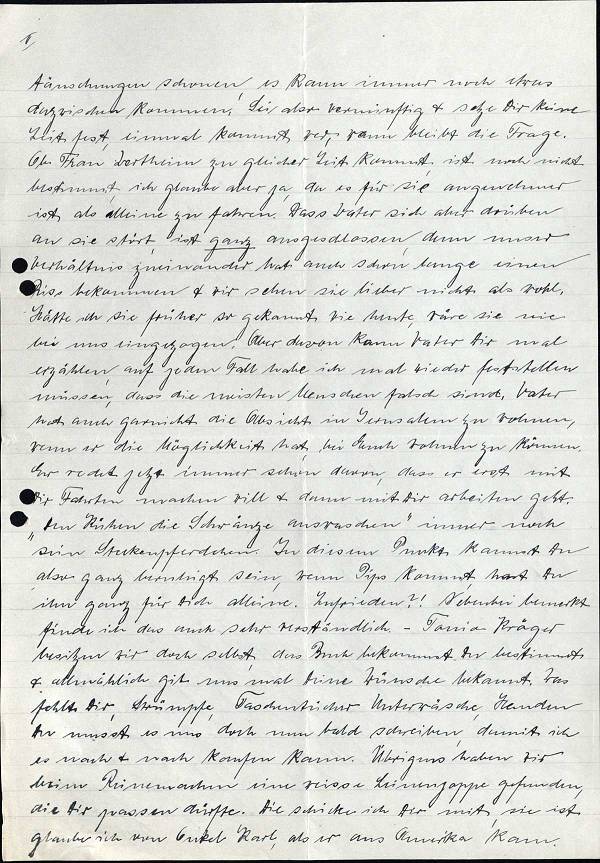 II
täuschungen schonen, es kann immer noch etwas
dazwischen kommen. Sei also vernünftig & setze Dir keine
Zeit fest, einmal kommt wer, wann bleibt die Frage.
Ob Frau Wertheim zu gleicher Zeit kommt, ist noch nicht
bestimmt, ich glaube aber ja, da es für sie angenehmer
ist als alleine zu fahren. Dass Vater sich aber drüben
an sie stört ist ganz ausgeschlossen, denn unser
Verhältnis zueinander hat auch schon lange einen
Riss bekommen & wir sehen sie lieber nicht als wohl.
Hätte ich sie früher so gekannt wie heute, wäre sie nie
bei uns eingezogen. Aber davon kann Vater Dir mal
erzählen, auf jeden Fall habe ich mal wieder feststellen
müssen, dass die meisten Menschen falsch sind. Vater
hat auch garnicht die Absicht in Jerusalem zu wohnen,
wenn er die Möglichkeit hat, bei Euch wohnen zu können.
Er redet jetzt immer schon davon, dass er erst mit
Dir Fahrten machen will & dann mit Dir arbeiten geht.
"Den Kühen die Schwänze auswaschen" immer noch
sein Steckenpferdchen. In diesem Punkt kannst Du
also ganz beruhigt sein, wenn Pips kommt, hast Du
ihn ganz für Dich alleine. Zufrieden?! Nebenbei bemerkt
finde ich das auch sehr verständlich. - Tonio Kröger
besitzen wir doch selbst, das Buch bekommst Du bestimmt
& allmählich gib uns mal Deine Wünsche bekannt. Was
fehlt Dir, Strümpfe, Taschentücher Unterwäsche, Hemden
Du musst es uns doch nun bald schreiben, damit ich
es nach & nach kaufen kann. Übrigens haben wir
beim Reinemachen eine weisse Leinenjoppe gefunden,
die Dir passen dürfte. Die schicke ich Dir mit, sie ist
glaube ich von Onkel Karl, als er aus Amerika kam.